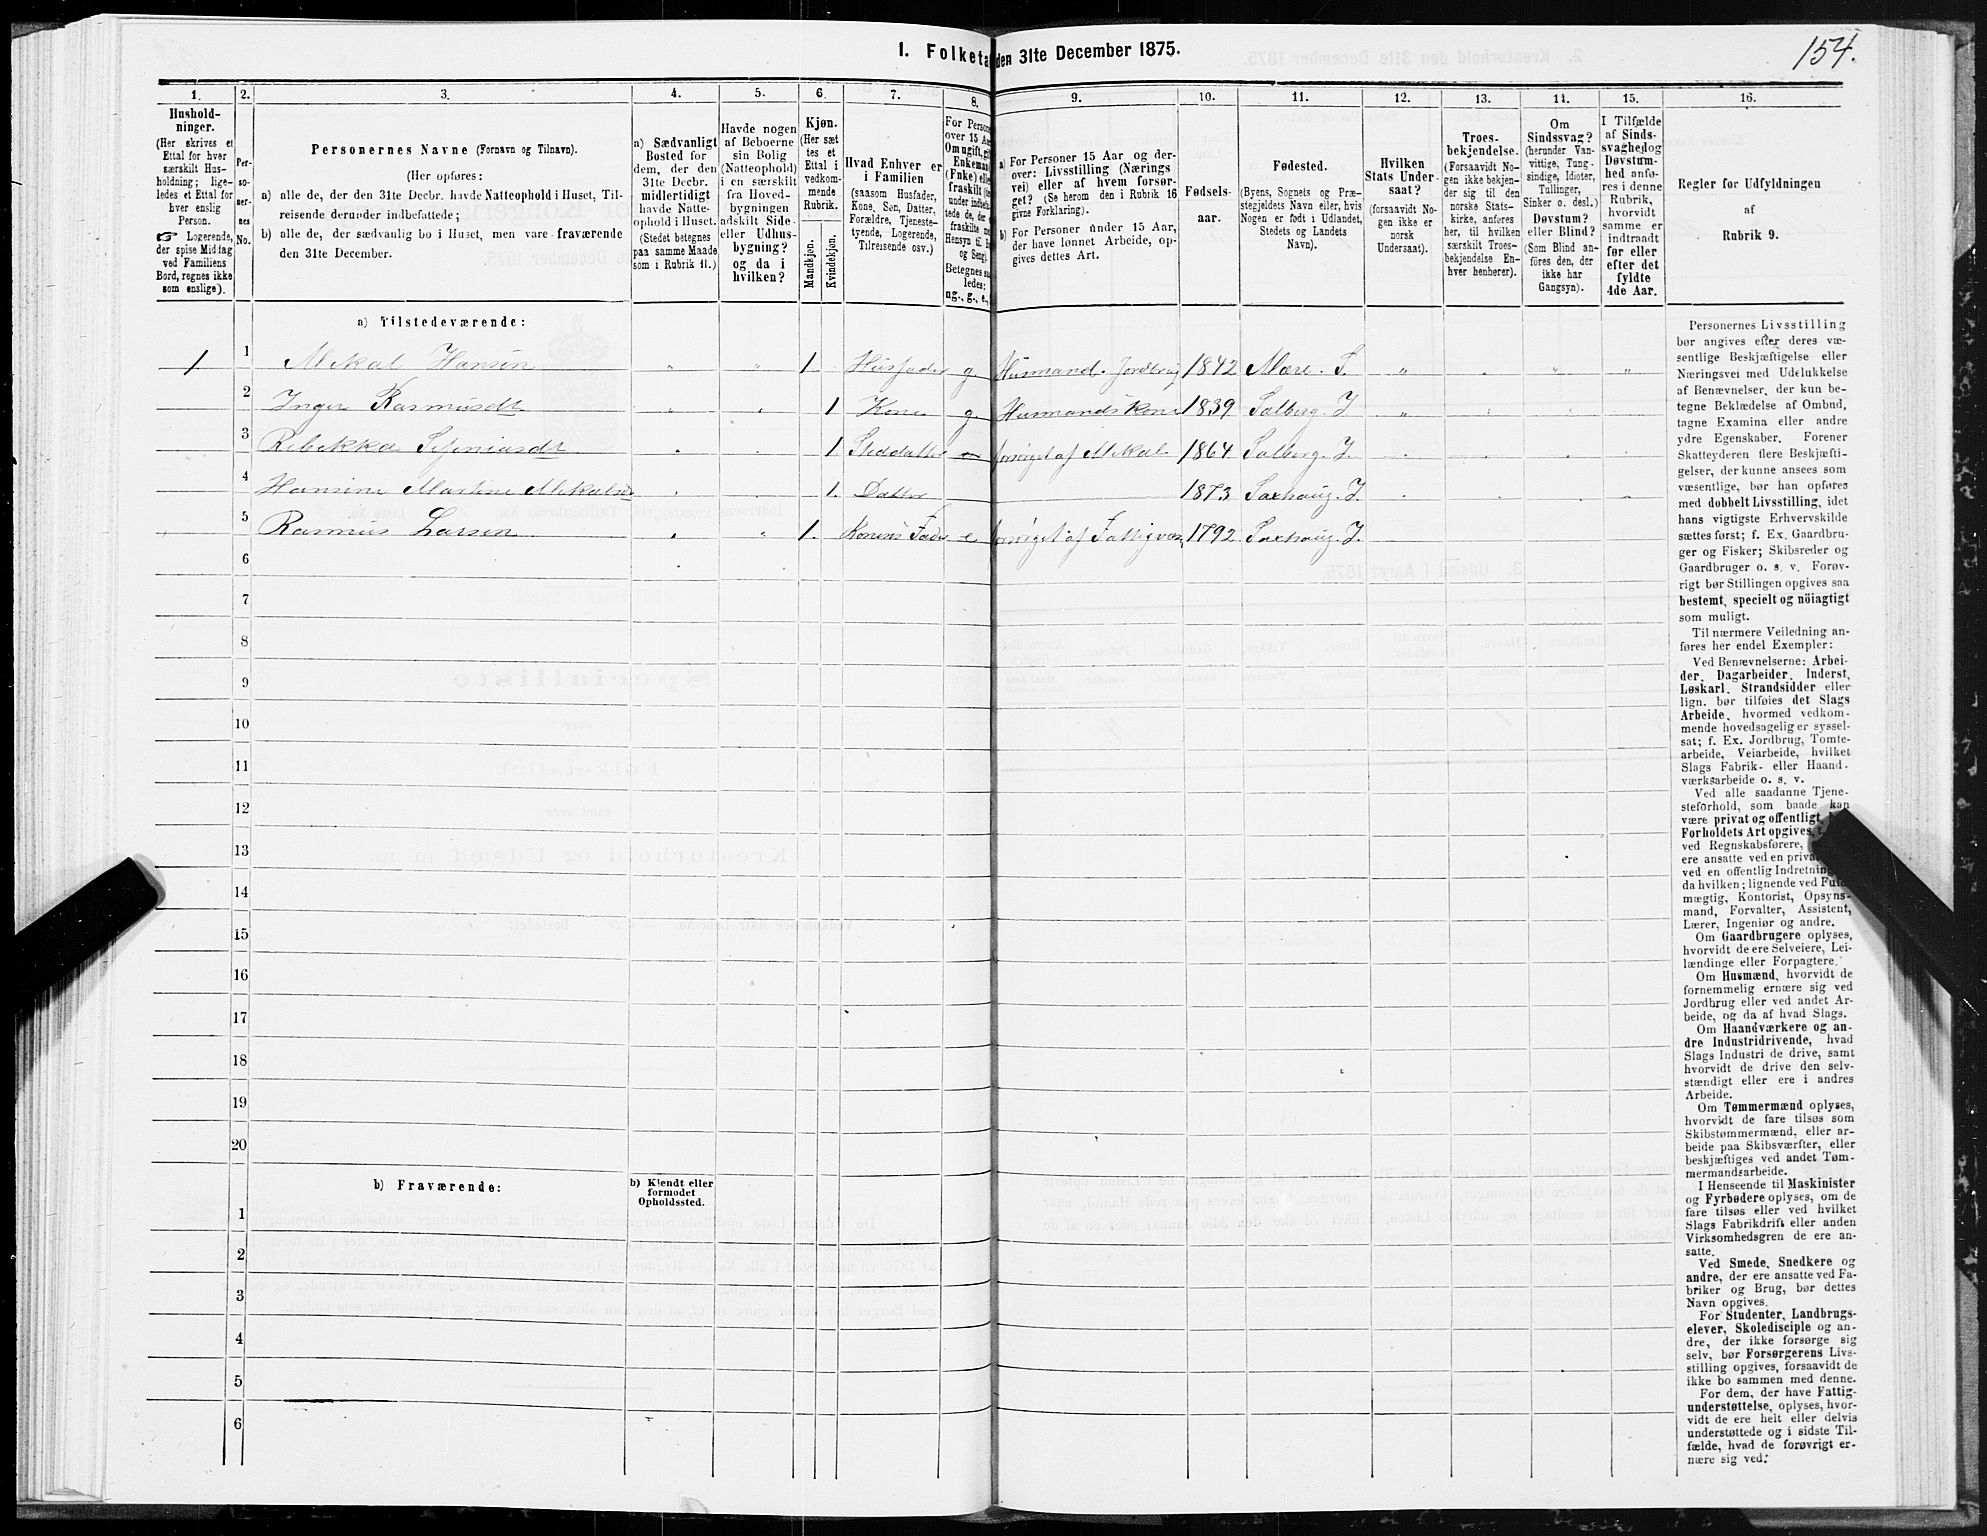 I. Folketal den 31te December 1875.
154.
1. 2. 3. 4. 5. 6. 7. 8. 9. 10. 11. 12. 13. 14. 15. 16.
Hushold-
ninger.
(Her skrives et
Ettal for hver
særskilt Hus-
holdning; lige-
ledes et Ettal for
hver enslig
Person.
☞ Logerende,
der spise Middag
ved Familiens
Bord, regnes ikke
som enslige).
Per-
so-
ner-
nes
No.
Personernes Navne (Fornavn og Tilnavn).
(Her opføres:
a) alle de, der den 31te Decbr. havde Natteophold i Huset, Til-
reisende derunder indbefattede;
b) alle de, der sædvanlig bo i Huset, men vare fraværende
den 31te December.
a) Sædvanligt
Bosted for
dem, der den
31te Decbr.
midlertidigt
havde Natte-
ophold i Huset.
(Stedet betegnes
paa samme Maade
som i Rubrik 11.)
Havde nogen
af Beboerne
sin Bolig
(Natteophold)
i en særskilt
fra Hoved-
bygningen
adskilt Side-
eller Udhus-
bygning?
og da i
hvilken?
Kjøn.
(Her sæt
tes et
Ettal i
vedkom-
mende
Rubrik.
Mandkjøn.
Kvindekjøn.
Hvad Enhver er
i Familien
(saasom Husfader,
Kone, Søn, Datter,
Forældre, Tjeneste-
tyende, Logerende,
Tilreisende osv.)
For Person
over 15 Aar
Om ugift, gift
Enkemand
(Enke) eller
fraskilt
under indbefat-
tede de, der
fraskilte
Hensyn til
og Seng).
Betegnes saa
ledes:
ug., g., e.,
a) For Personer 15 Aar og der-
over: Livsstilling (Nærings
vei) eller af hvem forsør-
get? (Se herom den i Rubrik 16
givne Forklaring).
b) For Personer under 15 Aar,
der have lønnet Arbeide, op-
gives dettes Art.
Fødsels-
aar.
Fødested.
(Byens, Sognets og Præ-
stegjeldets Navn eller, hvis
Nogen er født i Udlandet,
Stedets og Landets
Navn).
Hvilken
Stats Under-
saat?
(forsaavidt No-
gen ikke er
norsk
Undersaat).
Troes-
bekjendelse.
(Forsaavidt No-
gen ikke bekjen-
der sig til den
norske Stats-
kirke, anføres
her, til hvilken
særskilt Troes-
bekjendelse En-
hver henhører).
Om
Sindssvag?
(herunder Van-
vittige, Tung-
sindige, Idioter,
Tullinger,
Sinker o. desl.)
Døvstum?
eller Blind?
(Som Blind an-
føres den, der
ikke har
Gangsyn).
I Tilfælde
af Sinds-
svaghed og
Døvstum-
hed anfø-
res i denne
Rubrik,
hvorvidt
samme er
indtraadt
før eller
efter det
fyldte
4de Aar.
Regler for Udfyldningen
af
Rubrik 9.
a) Tilstedeværende:
1 1 Mekal Hansen " " 1 Husfader g. Husmand. Jordbrug 1842 Mære. S. " " " "
2 Inger Rasmusdt " " 1 Kone g. Husmandskone 1839 Salberg. I. "
3 Rebekka Sefeniasdt " " 1 Steddatter forsørget af Mekal 1864 Salberg. I.
4 Hansine Martine Mekalsdt " 1. Datter 1873 Saxhaug. I.
5 Rasmus Larsen " " 1. Konens Fader e. forsørget af Fattigvæs. 1792 Saxhaug. I.
6
7
8
9
10
11
12
13
14
15
16
17
18
19
20
b) Fraværende:
b) Kjendt eller
formodet
Opholdssted.
1
2
3
4
5
6
Personernes Livsstilling
bør angives efter deres væ-
sentlige Beskjæftigelse eller
Næringsvei med Udelukkelse
af Benævnelser, der kun be-
tegne Beklædelse af Ombud,
tagne Examina eller andre
ydre Egenskaber. Forener
Skatteyderen flere Beskjæfti-
gelser, der kunne ansees som
væsentlige, bør han opføres
med dobbelt Livsstilling, idet
hans vigtigste Erhvervskilde
sættes først; f. Ex. Gaardbru-
ger og Fisker; Skibsreder og
Gaardbruger o. s. v. Forøv-
rigt bør Stillingen opgives saa
bestemt, specielt og nöiagtigt
som muligt.
Til nærmere Veiledning an-
føres her endel Exempler:
Ved Benævnelserne: Arbei-
der, Dagarbeider, Inderst,
Løskarl, Strandsidder eller
lign. bør tilføies det Slags
Arbeide, hvormed vedkom-
mende hovedsagelig er syssel-
sat; f. Ex. Jordbrug, Tomte-
arbeide, Veiarbeide, hvilket
Slags Fabrik- eller Haand-
værksarbeide o. s. v.
Ved alle saadanne Tjene-
steforhold, som baade kan
være privat og offentligt,
Forholdets Art opgives,
ved Regnskabsførere,
ere ansatte ved en privat
ved en offentlig Indretning
da hvilken; lignende ved Fuld-
mægtig, Kontorist, Opsyns-
mand, Forvalter, Assistent,
Lærer, Ingeniør og andre.
Om Gaardbrugere oplyses,
hvorvidt de ere Selveiere, Lei-
lændinge eller Forpagtere.
Om Husmænd, hvorvidt de
fornemmelig ernære sig ved
Jordbrug eller ved andet Ar-
beide, og da af hvad Slags.
Om Haandværkere og an-
dre Industridrivende, hvad
Slags Industri de drive, samt
hvorvidt de drive den selv-
stændigt eller ere i andres
Arbeide.
Om Tømmermænd oplyses,
hvorvidt de fare tilsøs som
Skibstømmermænd, eller ar-
beide paa Skibsværfter, eller
beskjæftiges ved andet Tøm-
mermandsarbeide.
I Henseende til Maskinister
og Fyrbødere oplyses, om de
fare tilsøs eller ved hvilket
Slags Fabrikdrift eller anden
Virksomhedsgren de ere an-
satte.
Ved Smede, Snedkere og
andre, der ere ansatte ved Fa-
briker og Brug, bør dettes
Navn opgives.
For Studenter, Landbrugs-
elever, Skoledisciple og an-
dre, der ikke forsørge sig
selv, bør Forsørgerens Livs-
stilling opgives, forsaavidt de
ikke bo sammen med denne.
For dem, der have Fattig-
understøttelse, oplyses, hvor-
vidt de ere helt eller delvis
understøttede og i sidste Til-
fælde, hvad de forøvrigt er-
nære sig ved.